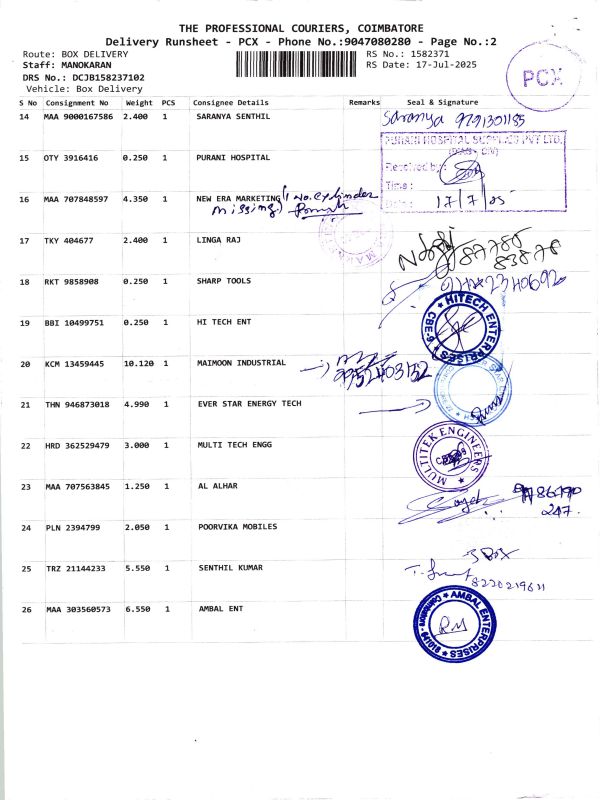 THE PROFESSIONAL COURIERS, COIMBATORE
Delivery Runsheet - PCX - Phone No.:9047080280 - Page No.:2
Route: BOX DELIVERY
RS No.: 1582371
Staff: MANOKARAN
RS Date: 17-Jul-2025
DRS No.: DCJB158237102
Vehicle: Box Delivery
PCX
S No Consignment No Weight PCS Consignee Details Remarks Seal & Signature
14 MAA 9000167586 2.400 1 SARANYA SENTHIL Saranya 9791301185
PURANI HOSPITAL SUPPLIES PVT LTD.
15 OTY 3916416 0.250 1 PURANI HOSPITAL Received by:
Time :
16 MAA 707848597 4.350 1 NEW ERA MARKETING (1 No. Cylinder
missing)
17/7/25
17 TKY 404677 2.400 1 LINGA RAJ 87780
83878
18 RKT 9858908 0.250 1 SHARP TOOLS
19 BBI 10499751 0.250 1 HI TECH ENT HITECH ENTERPRISES CBE-6
20 KCM 13459445 10.120 1 MAIMOON INDUSTRIAL
21 THN 946873018 4.990 1 EVER STAR ENERGY TECH
22 HRD 362529479 3.000 1 MULTI TECH ENGG MULTITEK ENGINEERS
23 MAA 707563845 1.250 1 AL ALHAR 86490
247.
24 PLN 2394799 2.050 1 POORVIKA MOBILES
3 Box
25 TRZ 21144233 5.550 1 SENTHIL KUMAR
8220219611
26 MAA 303560573 6.550 1 AMBAL ENT AMBAL ENTERPRISES
RM